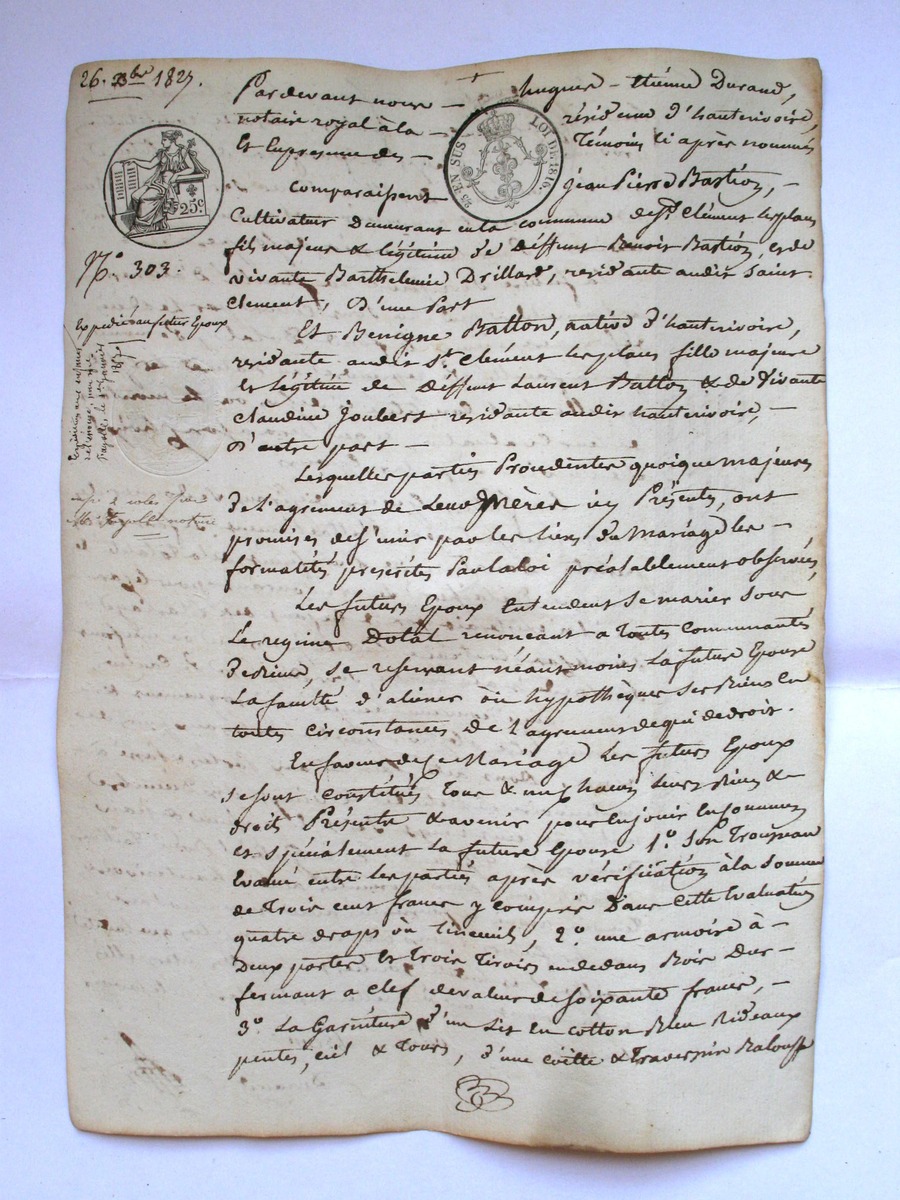 26. Xbre 1827.
Pardevant nous — hugues - Etiénne Durand,
notaire royal à la — résidence d'hauterivoire,
Et En presence des — Témoins ci après nommés
DROIT
25 c
25 EN SUS LOI DE 1816.
Comparaissent Jean Pierre Bastion, —
Cultivateur Demeurant en la commune de St Clément les places
fils majeur & légitime de déffunt Benoit Bastion, et de
vivante Barthelemie Drillard, residante audit Saint
Clement, D'une Part
No. 303.
Expedié au futur Epoux
Et Benigne Batton, native d'hauterivoire,
residante audit St Clément les places fille majeure
Et légitime de Déffunt Laurent Batton & de Vivante
Claudine Joubert residante audit hauterivoire, —
D'autre part —
Lesquelles parties Procédentes quoique majeures
De l'agrément de Leurs Mères ici Présentes, ont
promises de s'unir par les liens du Mariage les —
formalités prescrites Par la loi préalablement observées,
notaire
Les futurs Epoux Entendent Se marier Sous
Le regime Dotal renoncant a Toutes Communautés
De Biens, se reservant néantmoins La future Epouse
La faculté d'aliéner ou hypothèquer Ses Biens En
toutes circonstances De l'agrement de qui de droit.
En faveur de ce Mariage Les futurs Epoux
se sont constitués Tous & un chacun Leurs Biens &
droits Présents & avenir pour En jouir En Commun
et spécialement La future Epouse 1o. Son Trousseau
Evalué entre les parties après vérification à la Somme
de Trois cent francs y compris Dans Cette Evaluation
quatre draps ou linceuils, 2o. une armoire à —
Deux portes Et Trois Tiroirs en dedans Bois Dur —
fermant a clef de valeur de soixante francs, —
3o La Garniture d'un Lit En cotton Bleu Rideaux
pentes, ciel & Tours, d'une coëtte & Traversin